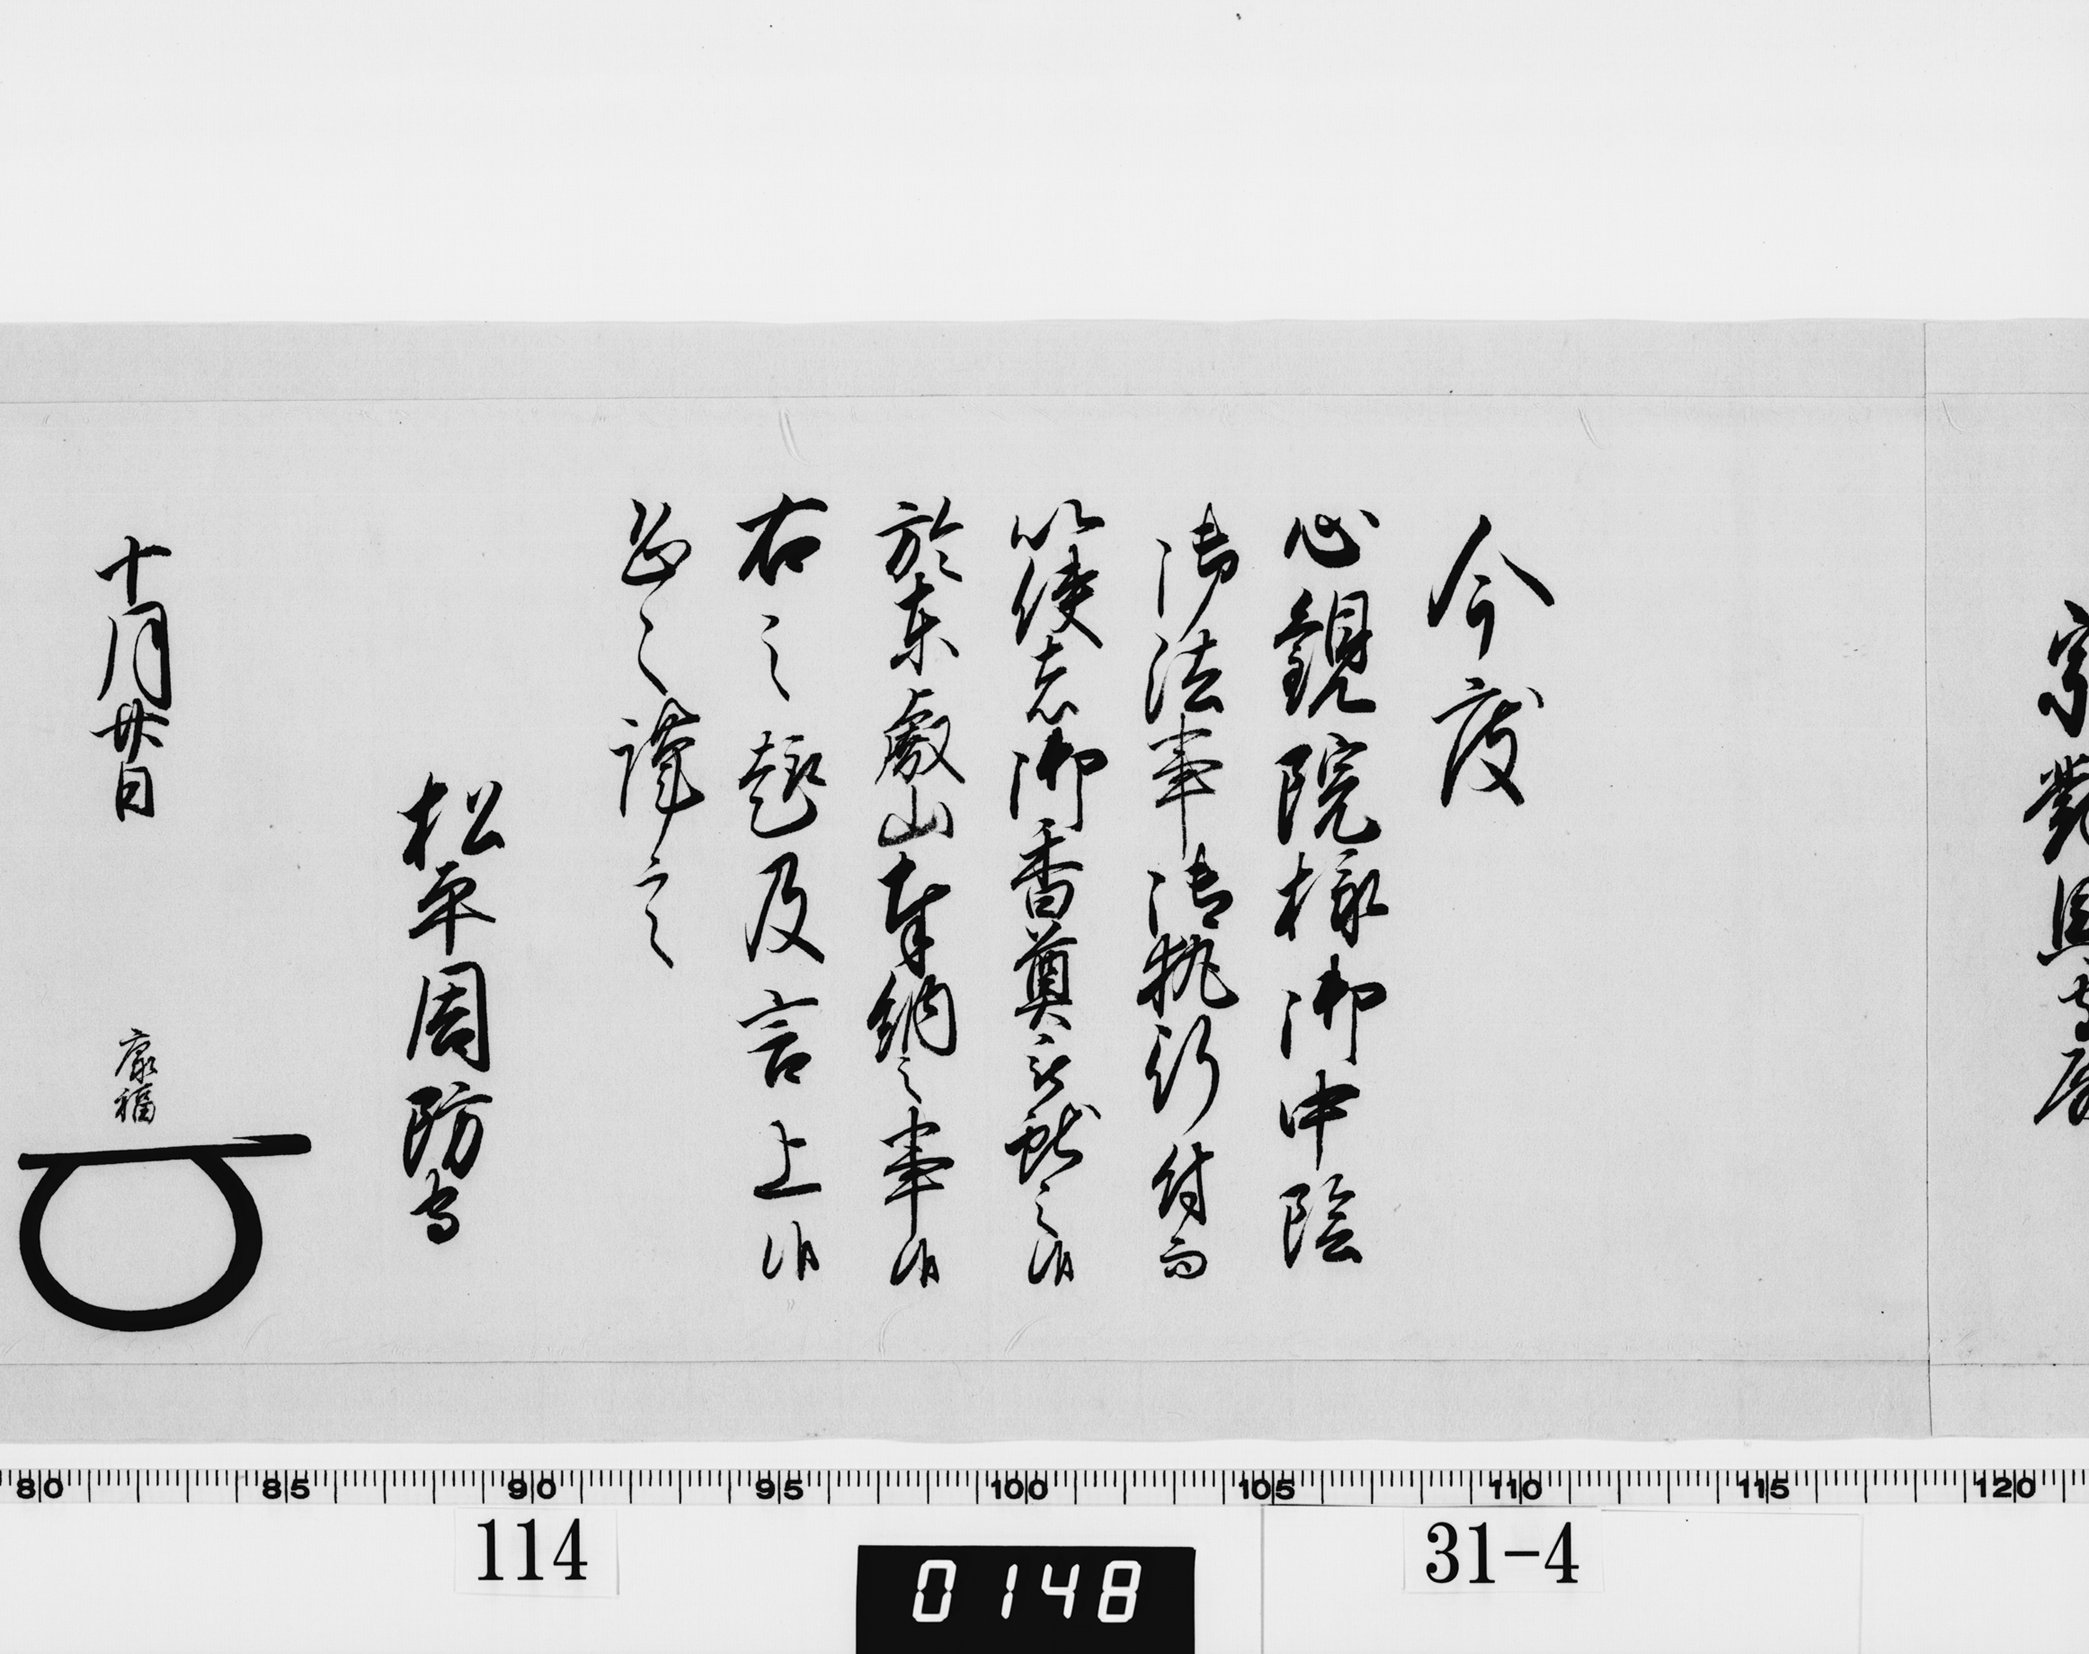 宗對馬守殿
今度
心觀院様御中陰
御法事御執行付而
以使者御香奠被獻之候
於東叡山奉納之事候
右之趣及言上候
恐々謹言
松平周防守
十月廿日
康福
80 85 90 95 100 105 110 115 120
114
0148
31-4